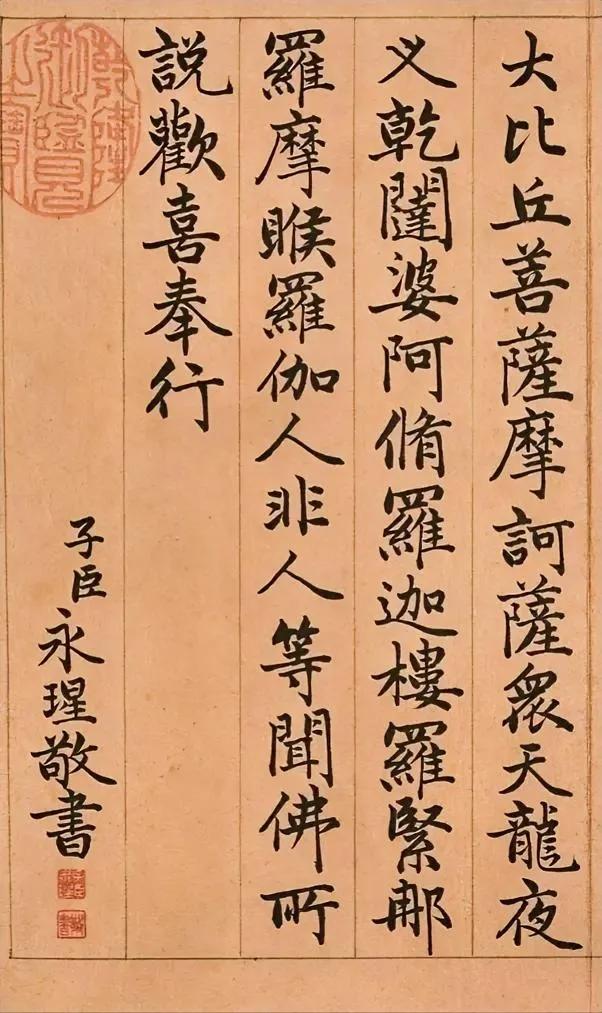 大比丘菩薩摩訶薩眾天龍夜
叉乾闥婆阿脩羅迦樓羅緊那
羅摩睺羅伽人非人等聞佛所
説歡喜奉行
子臣永瑆敬書
乾隆御覽之寶